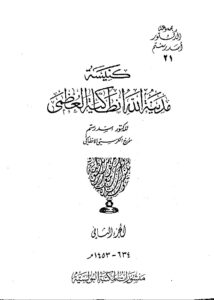 مجموعة
الدكتور
أسد رستم
٢١
كنيسة
مدينة الله انطاكية العظمى
للدكتور اسد رستم
مؤرخ الكرسي الانطاكي
الجزء الثاني
٦٣٤ - ١٤٥٣ م
منشورات المكتبة البولسية